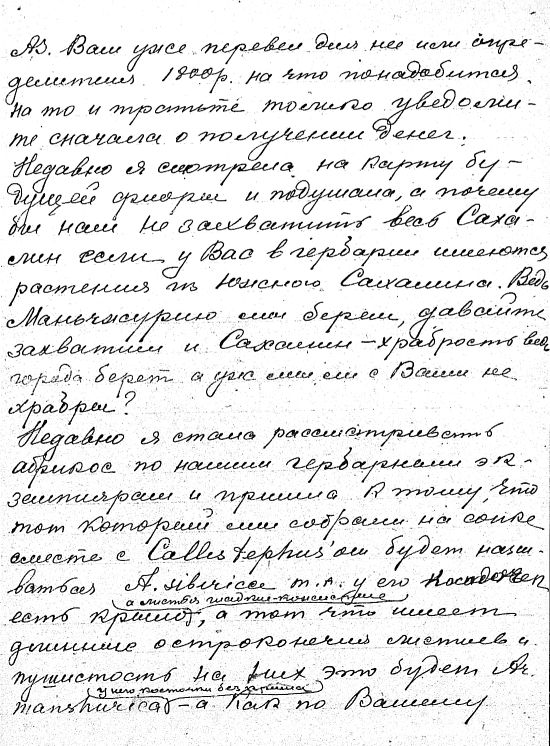 Аз. Вам уже перевел для нее или опре-
делитель 1800р. на что понадобится
на то и тратьте только уведоми-
те сначала о получении денег.
Недавно я смотрела на карту бу-
дущей флоры и подумала, а почему
бы нам не захватить весь Саха-
лин если у Вас в гербарии имеются
растения из Южного Сахалина. Ведь
Маньчжурию мы берем, давайте
захватим и Сахалин – храбрость ведь
города берет а уж мы ли с Вами не
храбры?
Недавно я стала рассматривать
абрикос по нашим гербарным эк-
земплярам и пришла к тому, что
тот который мы собрали на сопке
вместе с Callistephus'ом будет назы-
ваться A. sibirica т.к. у его косточек
а листья гладкие
есть крыло, а тот что имеет
длинные остроконечия листьев и
пушистость на них это будет Ar.
у него косточки без крыла
manshurica – а как по Вашему